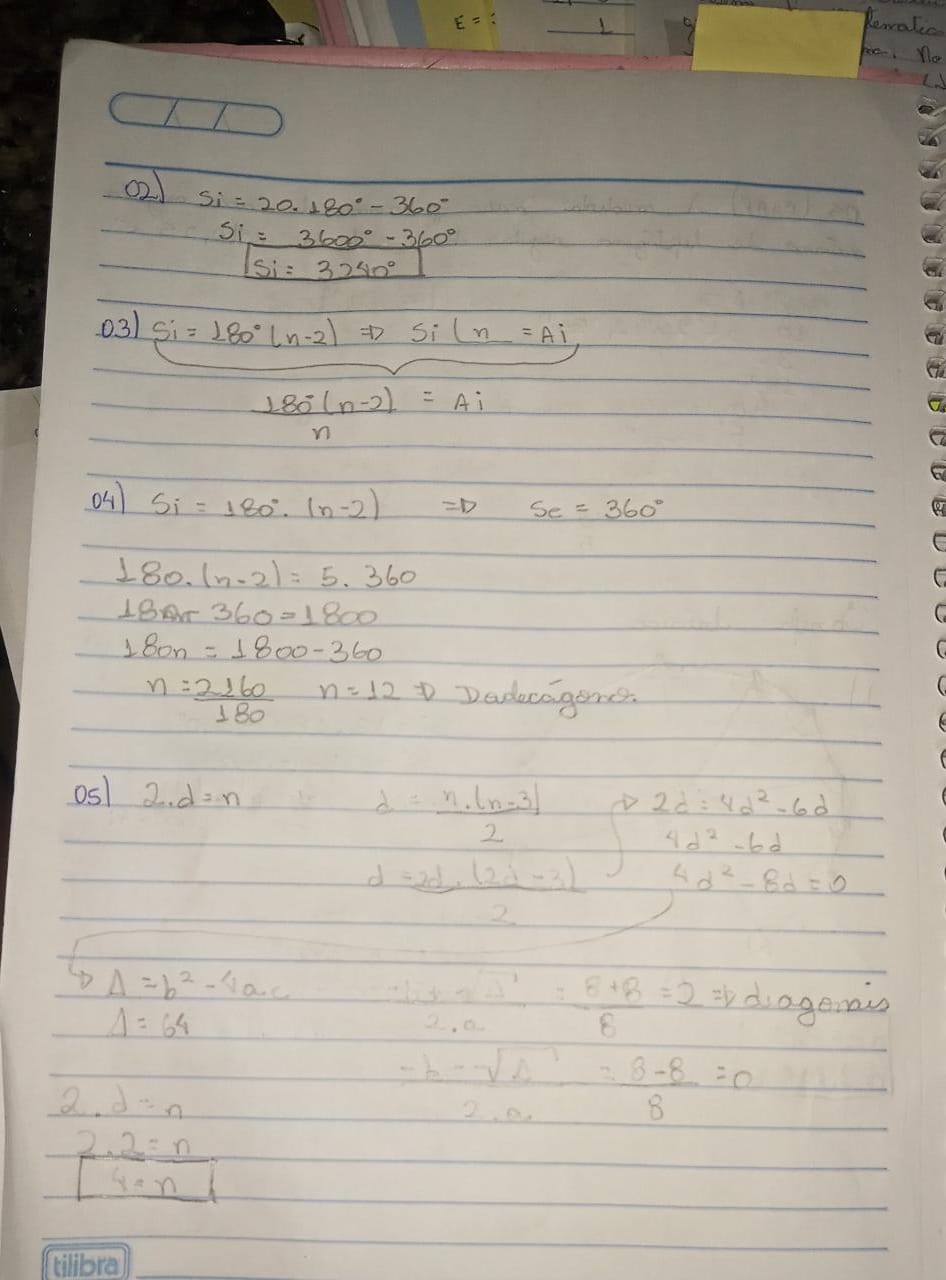 E = :
1
02) Si = 20.180° - 360°
Si = 3600° - 360°
Si = 3240°
03) Si = 180° (n-2) ⇒ Si (n = Ai
180°(n-2) = Ai
n
04) Si = 180°. (n-2) ⇒ Se = 360°
180.(n-2) = 5. 360
360 = 1800
180n = 1800 - 360
n = 2160 n = 12 ⇒ Dodecágono.
180
05) 2.d = n d = n.(n-3) ⇒ 2d = 4d² - 6d
2 4d² - 6d
d = 2d.(2d - 3) 4d² - 8d = 0
2
Δ = b² - 4ac = 8+8 = 2 ⇒ diagonais
Δ = 64 2.a 8
-b - √Δ = 8-8 = 0
2.d = n 2.a 8
2.2 = n
4 = n
tilibra